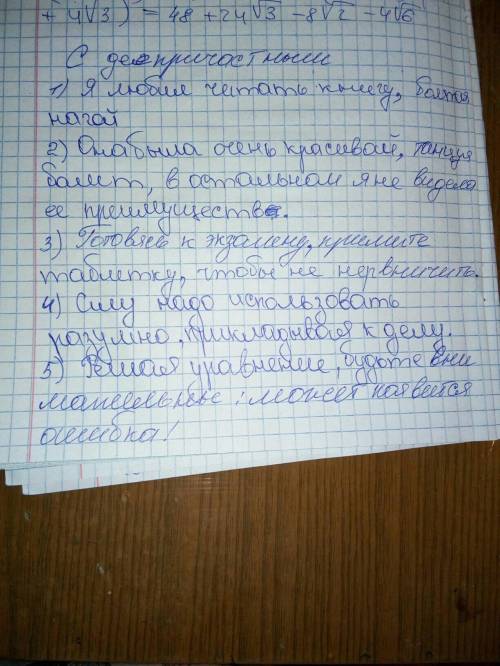 + 4√3) = 48 + 24√3 - 8√2 - 4√6
С деепричастными
1) Я любил читать книгу, болтая
ногой
2) Она была очень красивой, танцуя
балет, в остальном я не видела
ее преимуществ.
3) Готовясь к экзамену, примите
таблетку, чтобы не нервничить.
4) Силу надо использовать
разумно, прикладывая к делу.
5) Решая уравнение, будьте вни
мательны: может появится
ошибка!